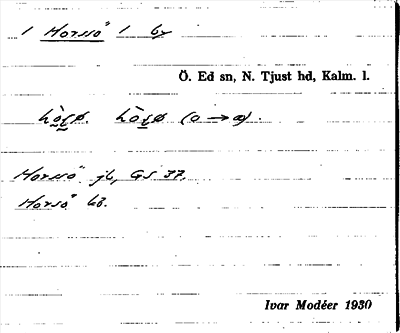 1 Horssö 1 by
Ö. Ed sn, N. Tjust hd, Kalm. l.
Horssö jb, GS 37.
Horsö kb.
Ivar Modéer 1930